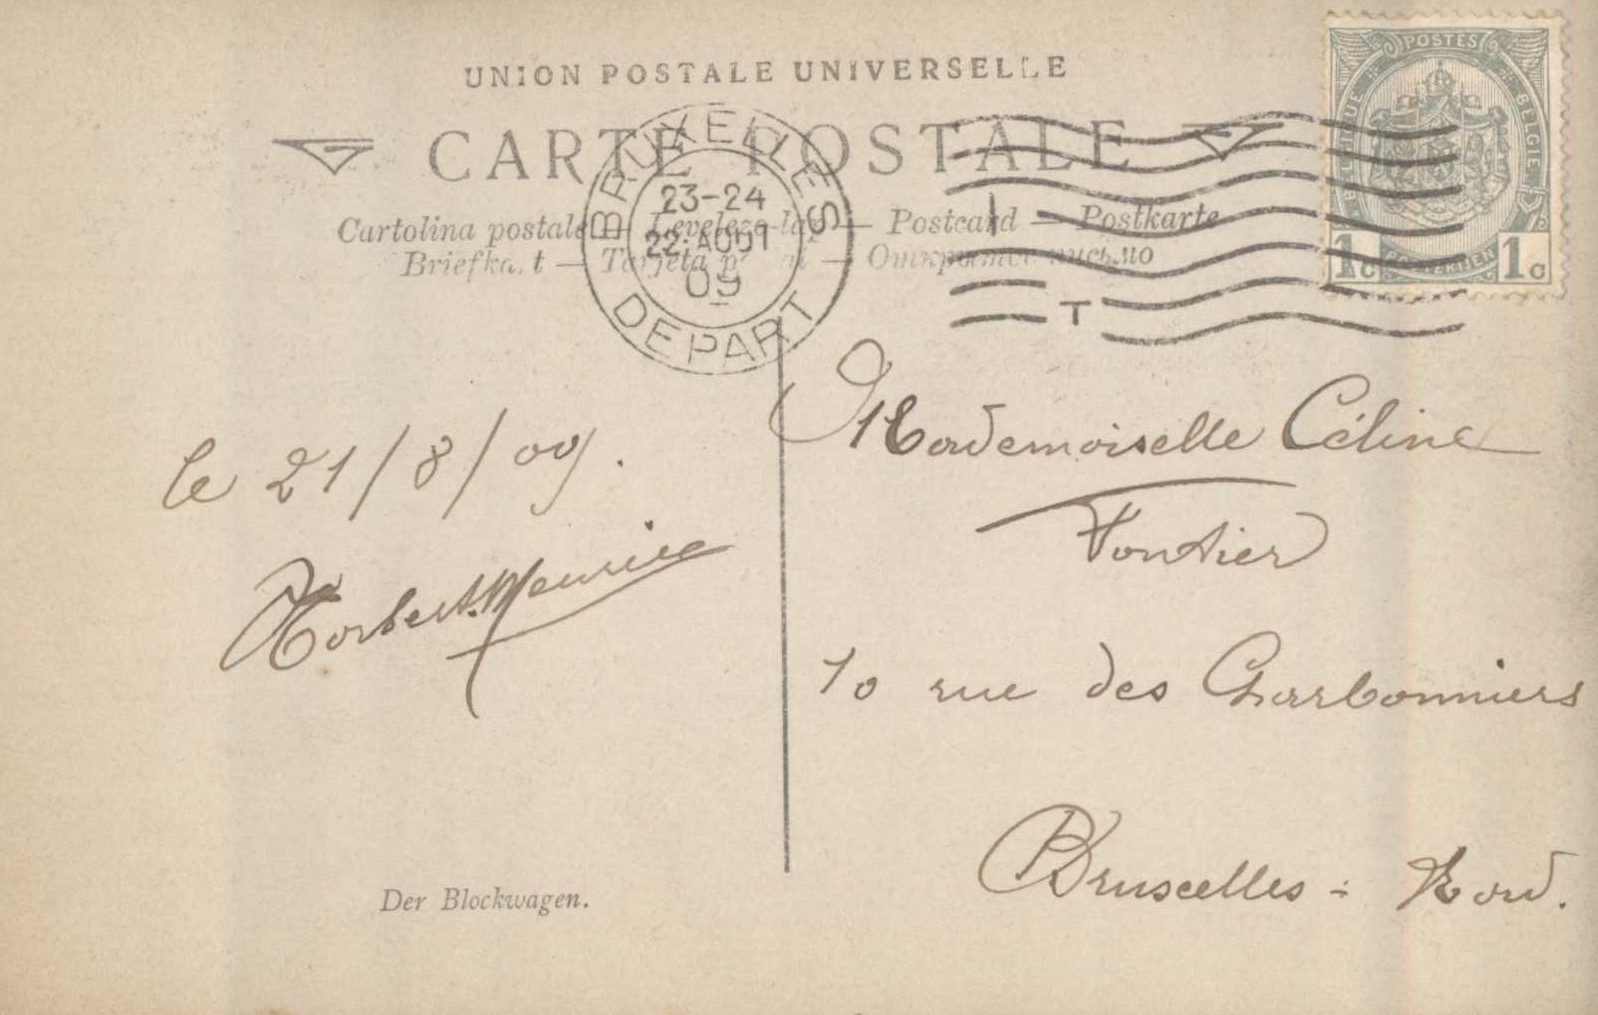 UNION POSTALE UNIVERSELLE
CARTE POSTALE
Cartolina postale — Levelező-lap — Postcard — Postkarte
Briefkaart — Tarjeta postal — Открытое письмо
BRUXELLES
23-24
22 AOUT
09
DEPART
T
POSTES
BELGIQUE
BELGIE
POSTERIJEN
1c
1c
le 21/8/09.
Norbert Meurice
Mademoiselle Céline
Fontier
10 rue des Charbonniers
Bruxelles - Nord.
Der Blockwagen.